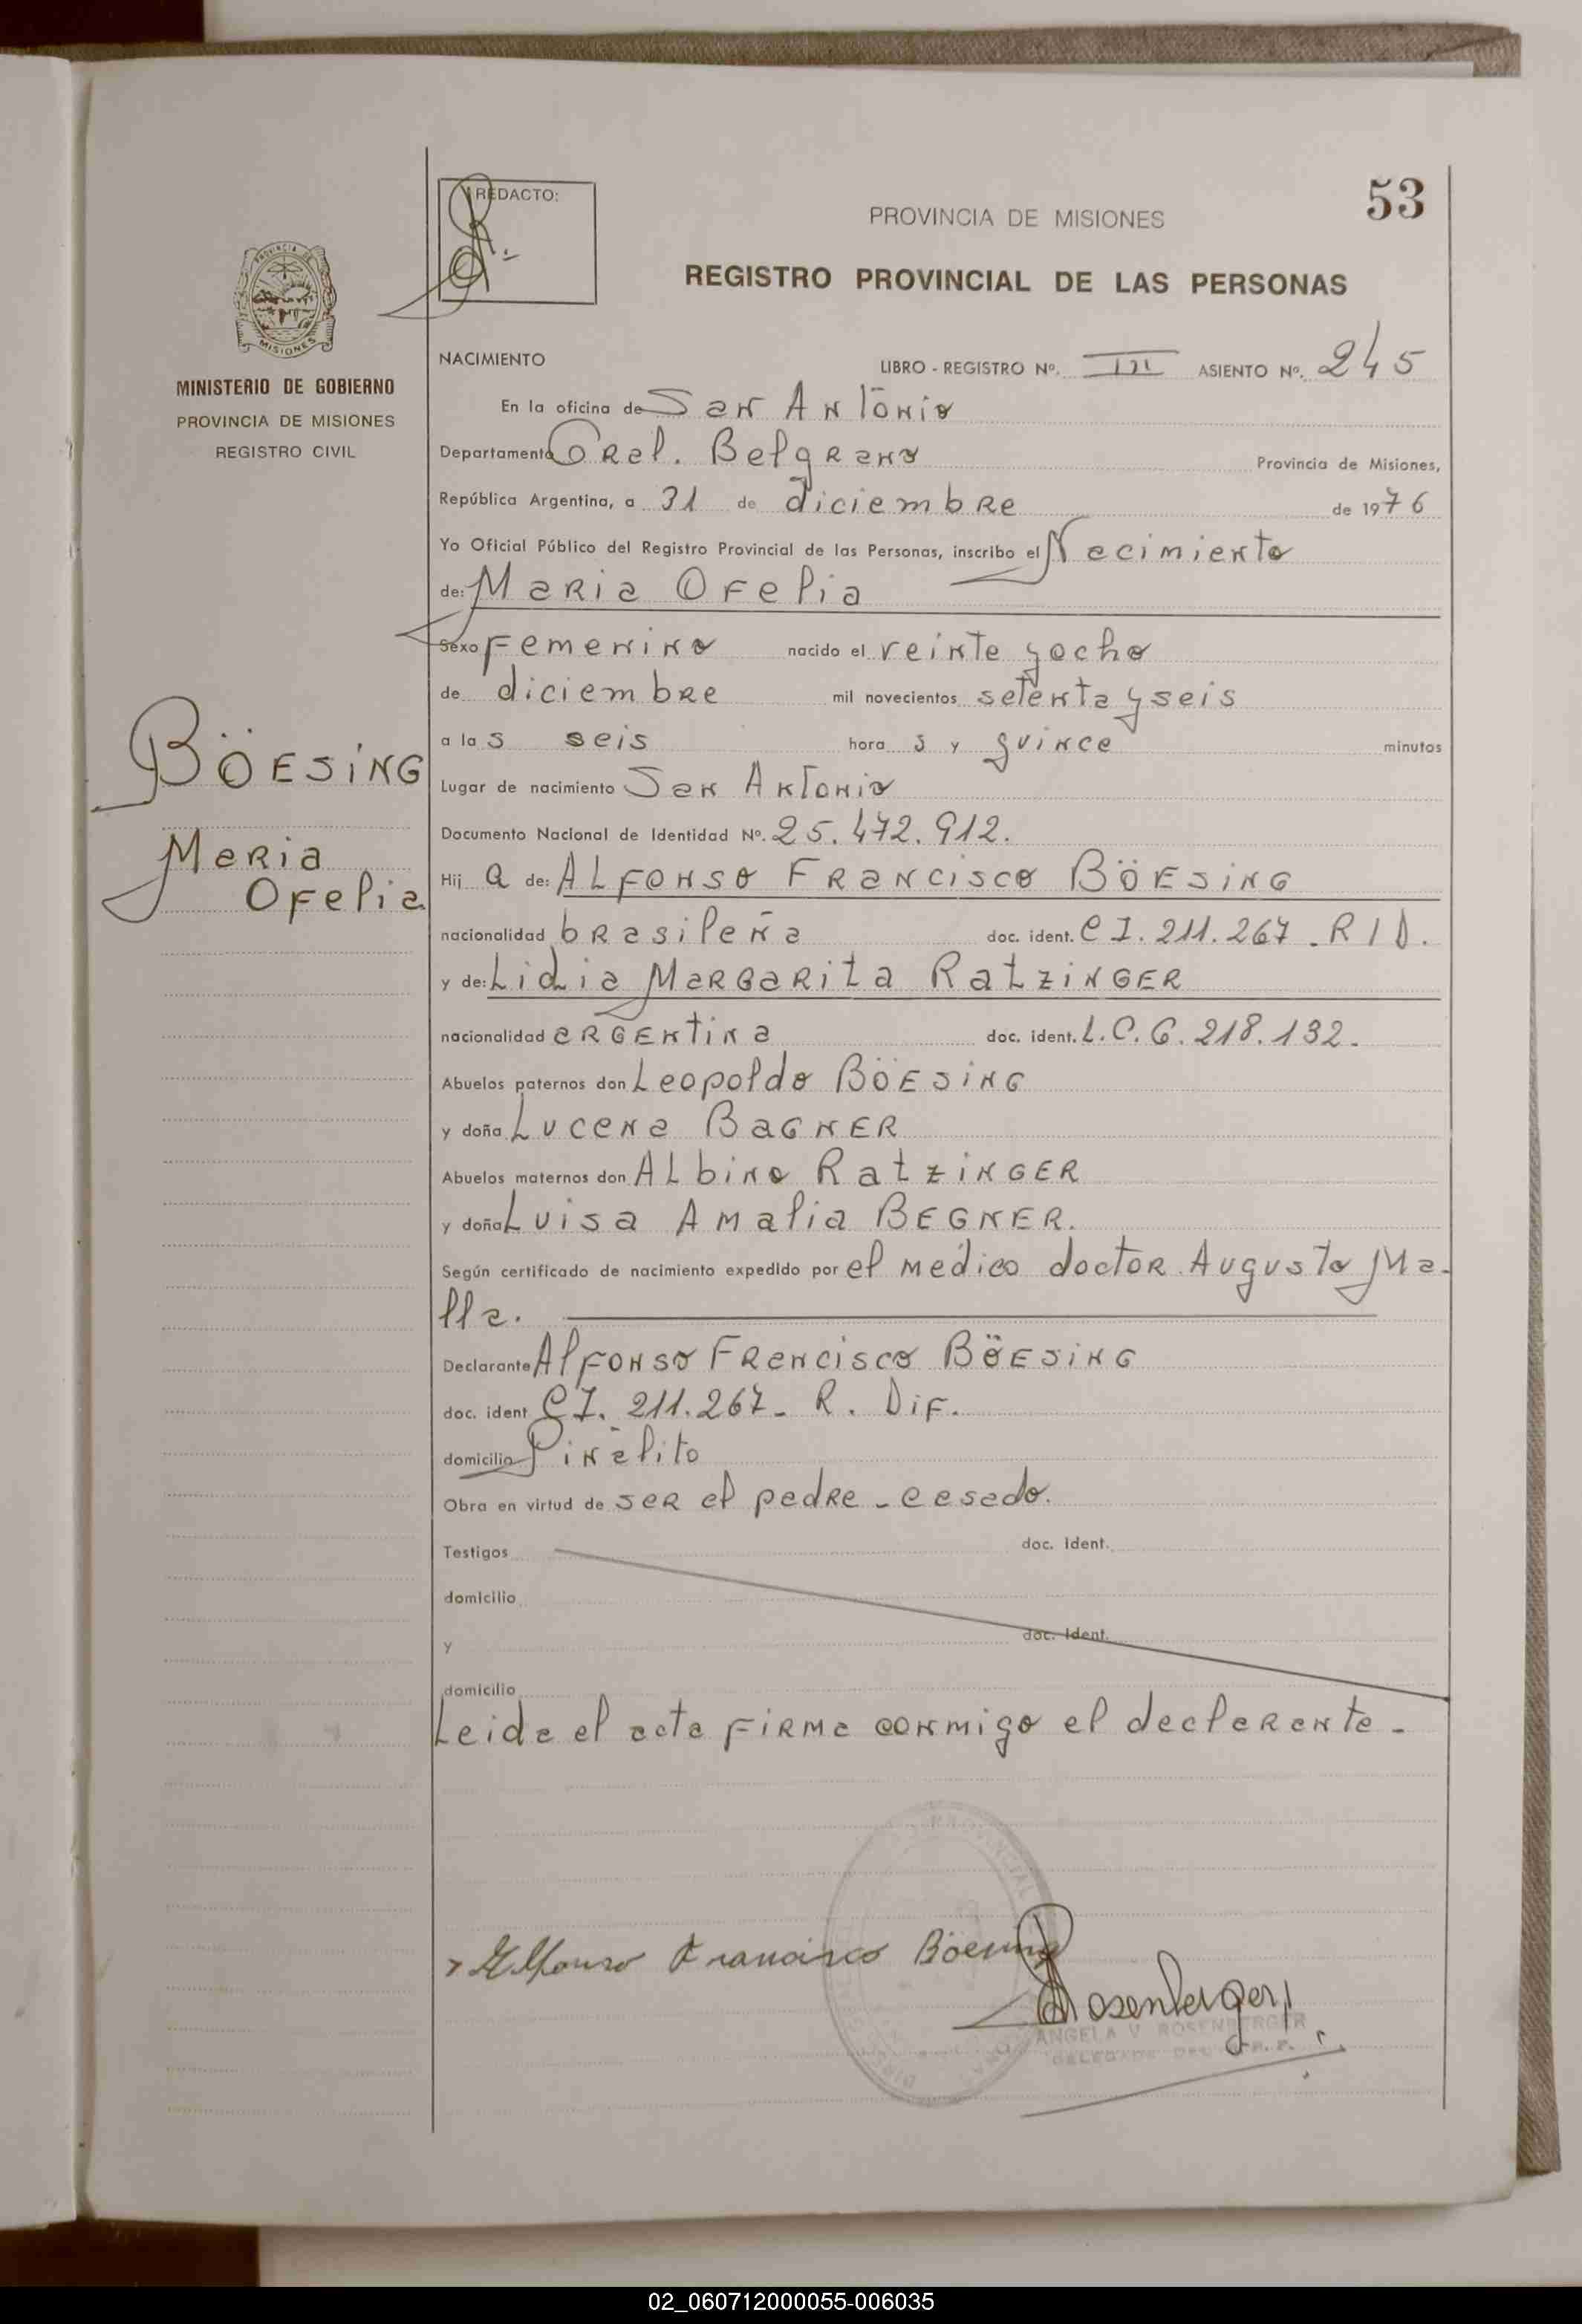 53
REDACTO:
PROVINCIA DE MISIONES
REGISTRO PROVINCIAL DE LAS PERSONAS
PROVINCIA DE MISIONES
MINISTERIO DE GOBIERNO
PROVINCIA DE MISIONES
REGISTRO CIVIL
NACIMIENTO LIBRO - REGISTRO Nº. III ASIENTO Nº. 245
En la oficina de San Antonio
Departamento Gral. Belgrano Provincia de Misiones,
República Argentina, a 31 de diciembre de 1976
Yo Oficial Público del Registro Provincial de las Personas, inscribo el Nacimiento
de: Maria Ofelia
Sexo Femenino nacido el veinte y ocho
de diciembre mil novecientos setenta y seis
a las seis hora s y quince minutos
BÖESING
Maria
Ofelia
Lugar de nacimiento San Antonio
Documento Nacional de Identidad Nº. 25.472.912.
Hij a de: ALFONSO FRANCISCO BÖESING
nacionalidad brasileña doc. ident. CI. 211.267 - R/D.
y de: Lidia Margarita Ratzinger
nacionalidad argentina doc. ident. L.C. 6.218.132.
Abuelos paternos don Leopoldo BÖESING
y doña Lucena BAGNER
Abuelos maternos don Albino RATZINGER
y doña Luisa Amalia BEGNER.
Según certificado de nacimiento expedido por el médico doctor Augusto Ma-
lla.
Declarante Alfonso Francisco BÖESING
doc. ident CI. 211.267 - R. Dif.
domicilio Pinalito
Obra en virtud de ser el padre - casado.
Testigos doc. Ident.
domicilio
y doc. Ident.
domicilio
Leida el acta firma conmigo el declarante -
Alfonso Francisco Böesing
Rosenberger
ANGELA V. ROSENBERGER
02_060712000055-006035